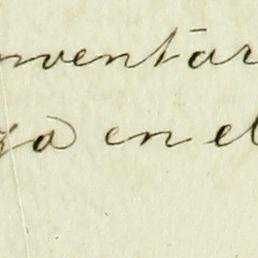 nventar
a en el